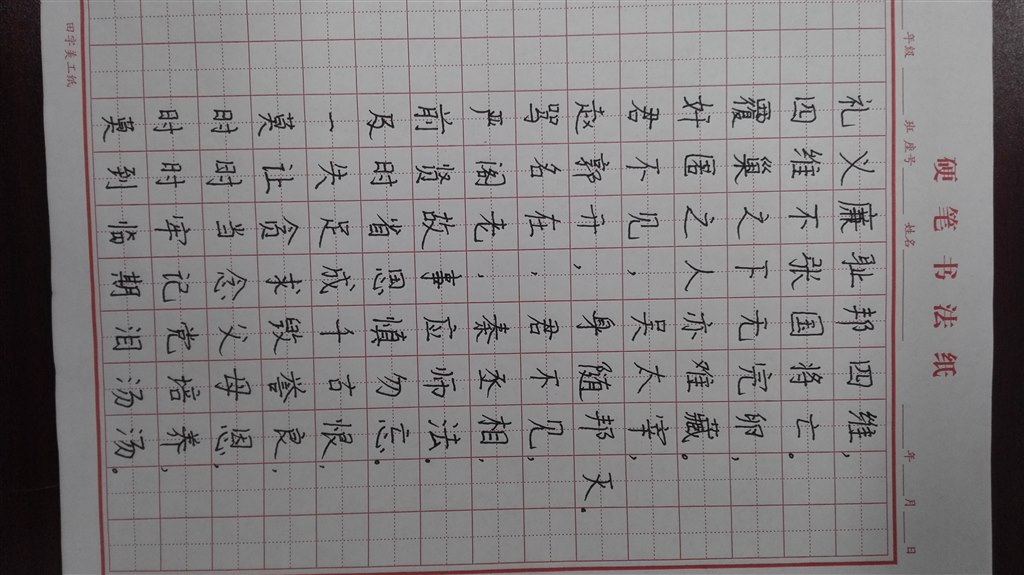 硬笔书法纸
年级 班 座号 姓名 年 月 日
礼义廉耻邦四维,
四维不张国将亡。
覆巢之下无完卵,
奸匿之人亦难藏。
君不见,吴太宰,
赵郭开,身随邦灭。
骂名在,君不见,
严阁老,秦丞相,
前贤故事应师法。
及时省思慎勿忘。
一失足成千古恨,
莫让贪求毁誉良,
时时当念父母恩,
时时牢记党培养,
莫到临期泪汤汤。
田字美工纸